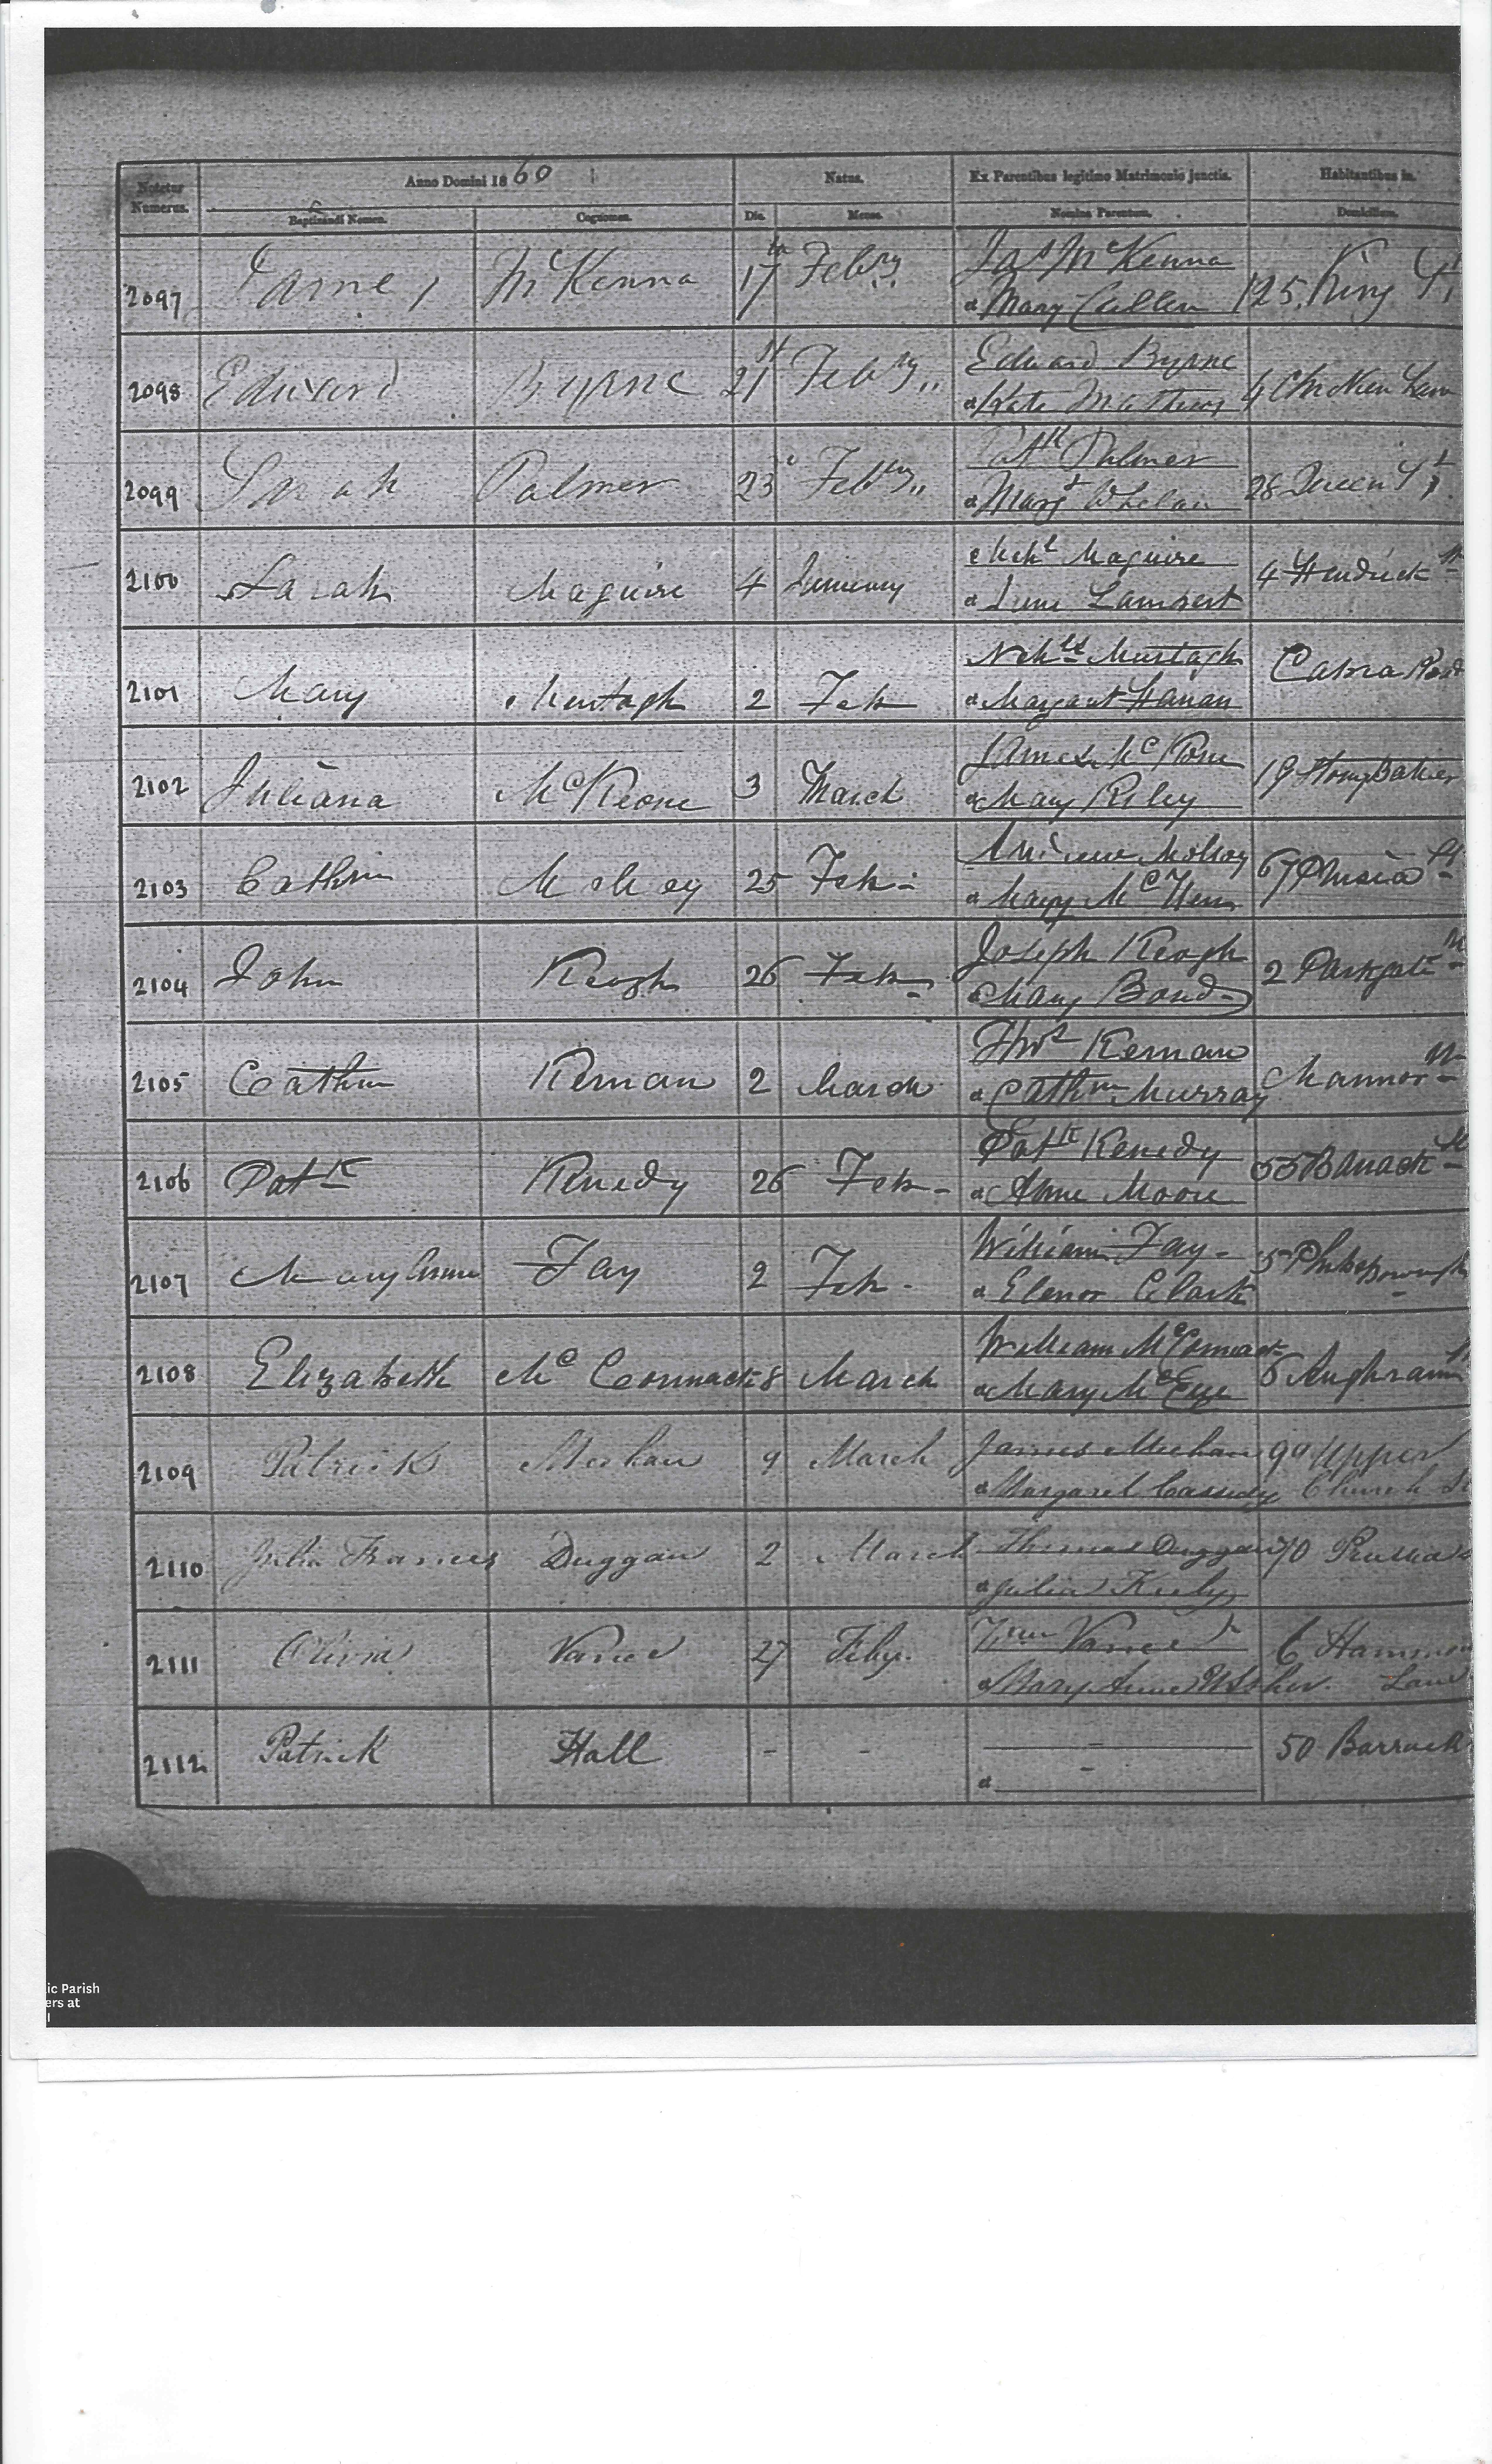 Notetur Numerus. Anno Domini 1860 Natus. Ex Parentibus legitimo Matrimonio junctis. Habitantibus in.
Baptizandi Nomen. Cognomen. Die. Mense. Nomina Parentum. Domicilium.
2097 James McKenna 17th Febry Jas McKenna 125 King St
& Mary Cullen
2098 Edward Byrne 21st Febry Edward Byrne 4 Chicken Lane
& Kate Mathews
2099 Sarah Palmer 23 Febry Patk Palmer 28 Queen St
& Margt Whelan
2100 Sarah Maguire 4 January Michl Maguire 4 Hendrick St
& Lambert
2101 Mary Murtagh 2 Feb Murtagh Cabra Road
& Margaret Hanan
2102 Juliana McKeone 3 March James 19 Stonybatter
& Mary Riley
2103 Cathrin Molloy 25 Feb Andrew Molloy 67 Prusia St
& Mary
2104 John Keogh 26 Feb Joseph Keogh 2 Parkgate St
& Mary Bond
2105 Cathrn Kernan 2 March Thos Kernan Mannor St
& Cathrn Murray
2106 Patk Kenedy 26 Feb Patk Kenedy 55 Barrack St
& Anne Moore
2107 Mary Anne Fay 2 Feb William Fay 5 Phibsborough
& Elenor Clark
2108 Elizabeth McCormack 8 March William McCormack 6 Aughram St
& Mary McEye
2109 Patrick Meehan 9 March James Meehan 99 Upper
& Margaret Cassedy Church St
2110 Julia Frances Duggan 2 March Thomas Duggan 70 Prussia St
& Julia
2111 Olivia Vance 27 Feby. Vance 6 Hammon
& Mary Anne Usher. Lane
2112 Patrick Hall - - - 50 Barrack
& -
ic Parish
ers at